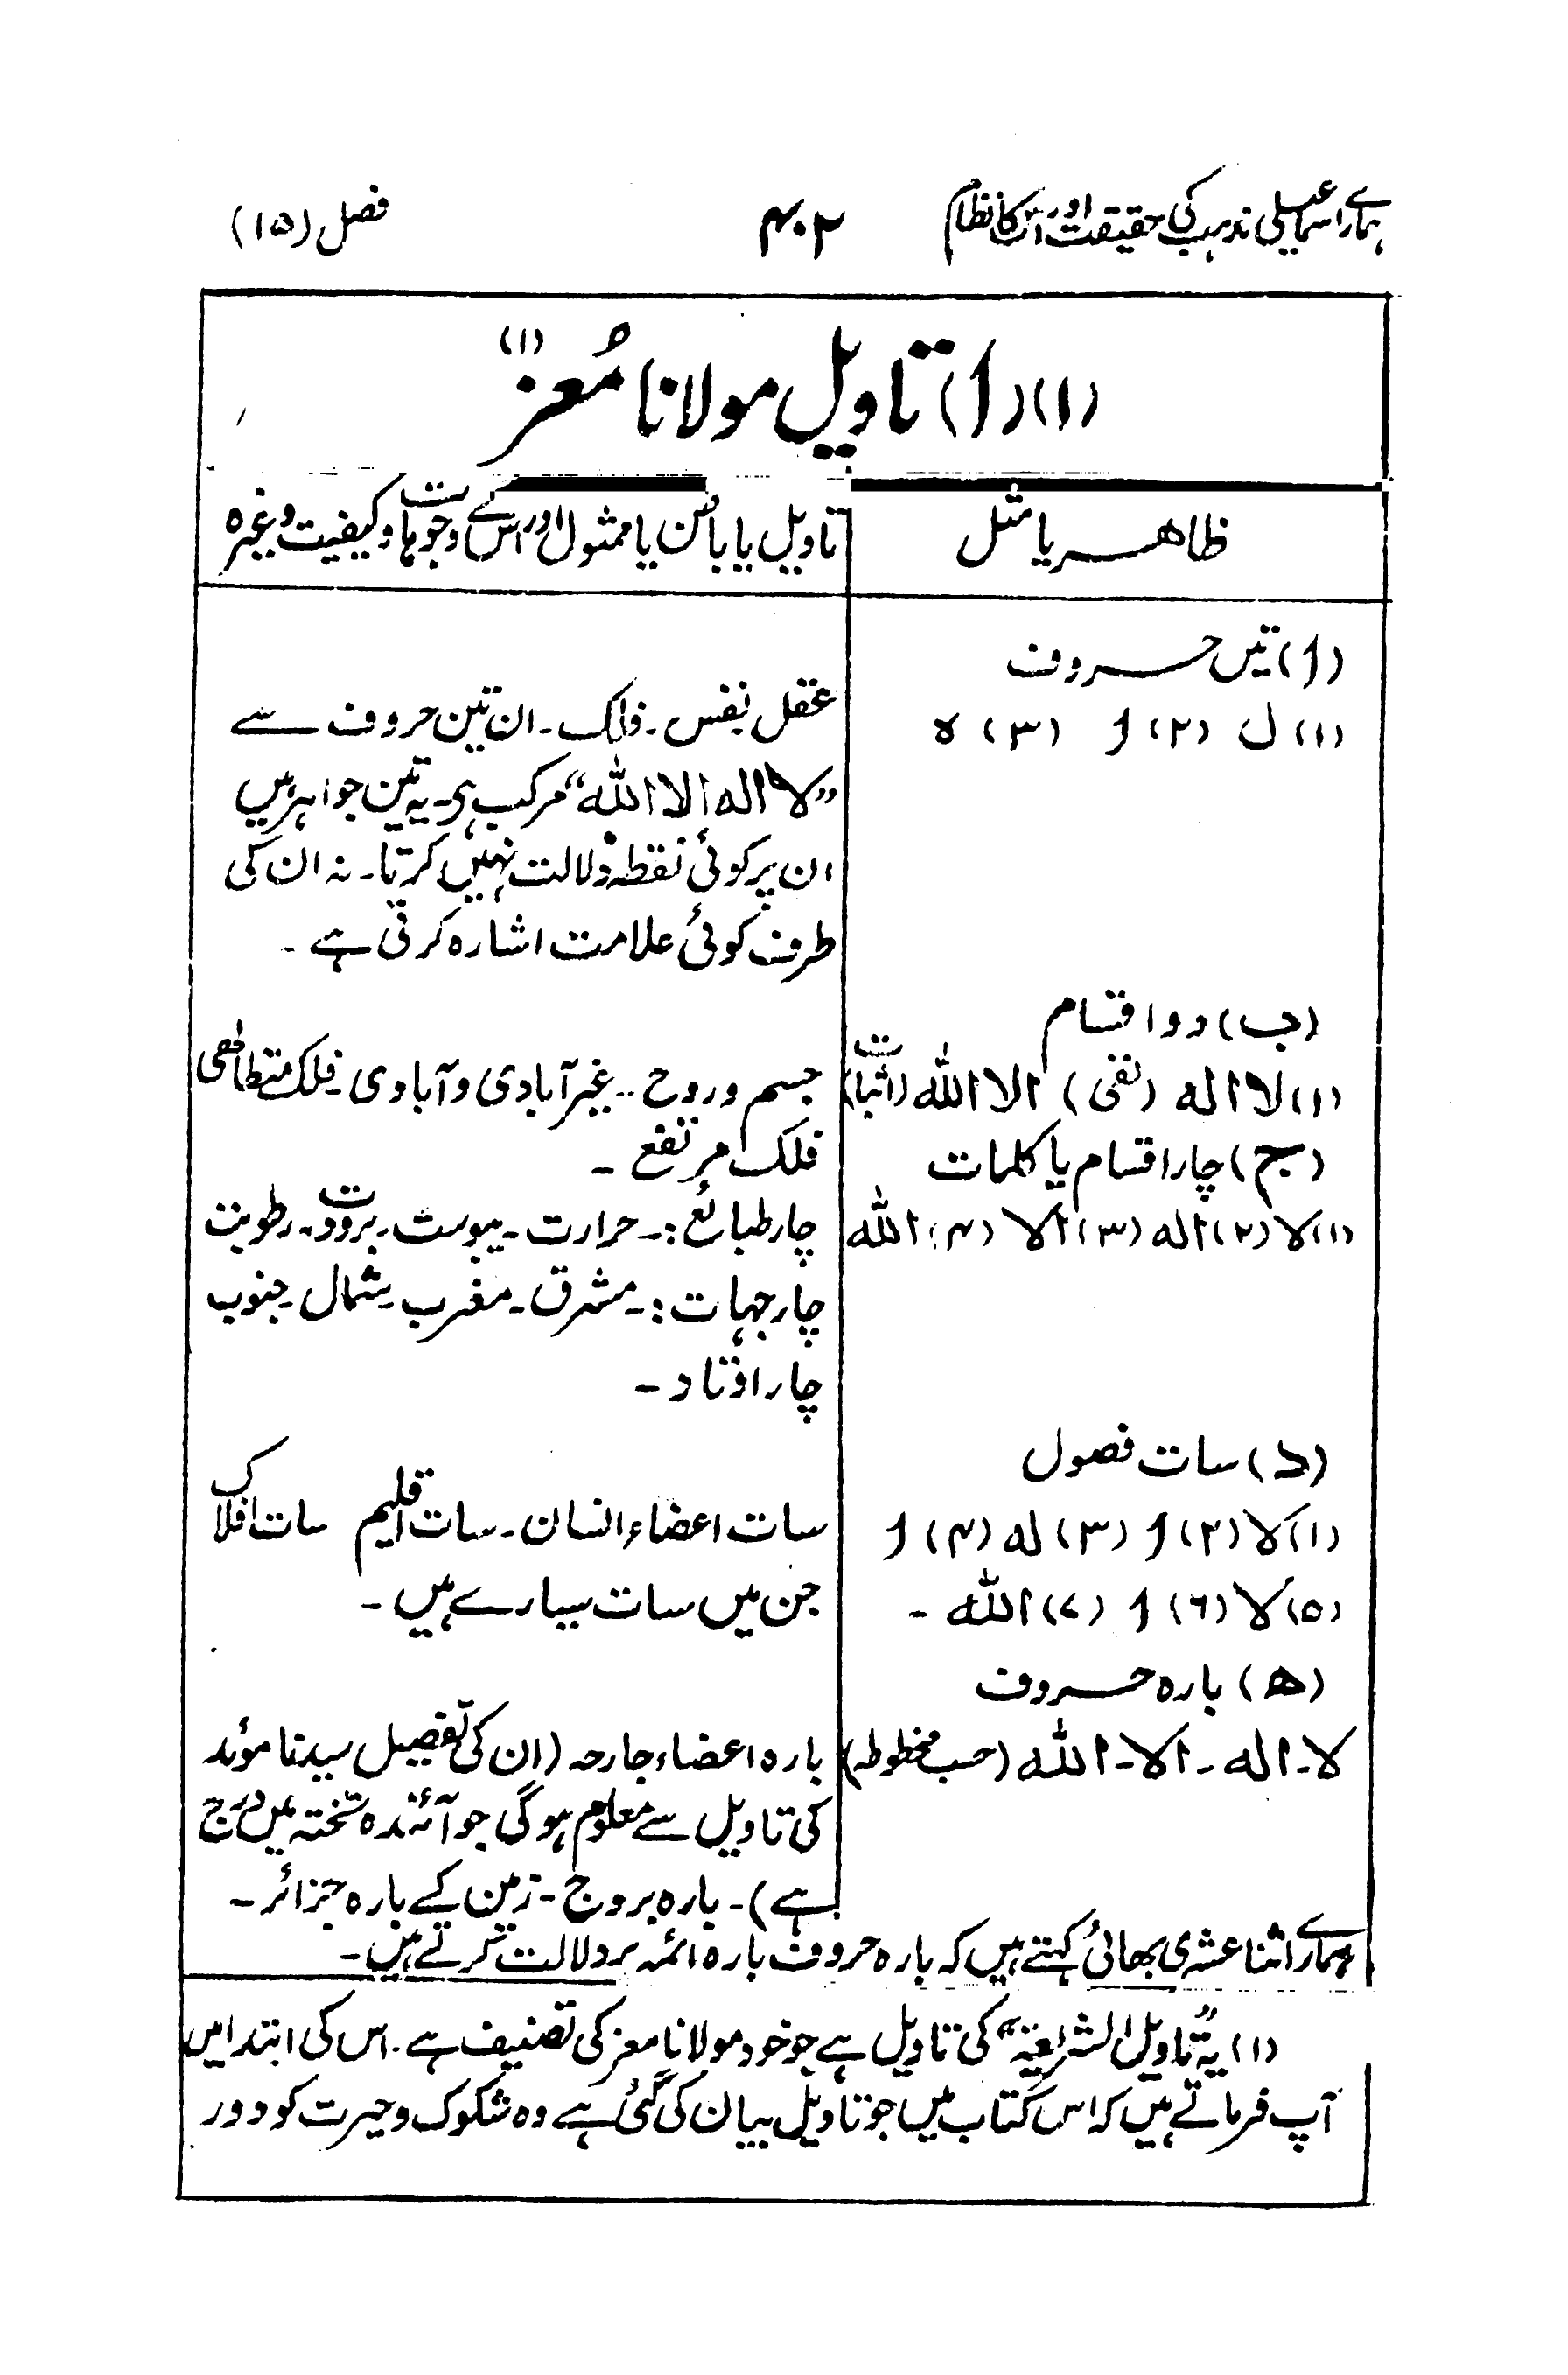 ہمارے اسماعیلی مذہب کی حقیقت اور اس کا نظام ۴۰۲ فصل (۱۵)
(۱) (ا) تاویل مولانا مُعِز (۱)
ظاہر یا مثل
تاویل یا باطن یا ممثول اور اس کے وجوہات و کیفیت وغیرہ
(ا) تین حروف
(۱) ل (۲) ا (۳) ہ
عقل۔ نفس۔ فلک۔ ان تین حروف سے
"لا الہ الا اللہ" مرکب ہی۔ یہ تین جواہر ہیں
ان پر کوئی نقطہ دلالت نہیں کرتا۔ نہ ان کی
طرف کوئی علامت اشارہ کرتی ہے۔
(ب) دو اقسام
(۱) لا الہ (نفی) الا اللہ (اثبات)
جسم و روح۔ غیر آبادی و آبادی۔ فلک
فلک مرتفع۔
(ج) چار اقسام یا کلمات
(۱) لا (۲) الہ (۳) الا (۴) اللہ
چار طبائع:۔ حرارت۔ یبوست۔ برودت۔ رطوبت
چار جہات:۔ مشرق۔ مغرب۔ شمال۔ جنوب
چار اوتاد۔
(د) سات فصول
(۱) لا (۲) ا (۳) لہ (۴) ا
(۵) لا (۶) ا (۷) اللہ۔
سات اعضاء انسان۔ سات اقلیم سات افلاک
جن میں سات سیارے ہیں۔
(ھ) بارہ حروف
لا۔ الہ۔ الا۔ اللہ (حسب مخطوطہ)
بارہ اعضاء جارحہ (ان کی تفصیل سیدنا موئد
کی تاویل سے معلوم ہو گی جو آئندہ تختہ میں درج
ہے)۔ بارہ بروج۔ زمین کے بارہ جزائر۔
ہمارے اثنا عشری بھائی کہتے ہیں کہ بارہ حروف بارہ ائمہ پر دلالت کرتے ہیں۔
(۱) یہ "تاویل الشریعۃ" کی تاویل ہے جو خود مولانا معز کی تصنیف ہے۔ اس کی ابتدا میں
آپ فرماتے ہیں کہ اس کتاب میں جو تاویل بیان کی گئی ہے وہ شکوک و حیرت کو دور